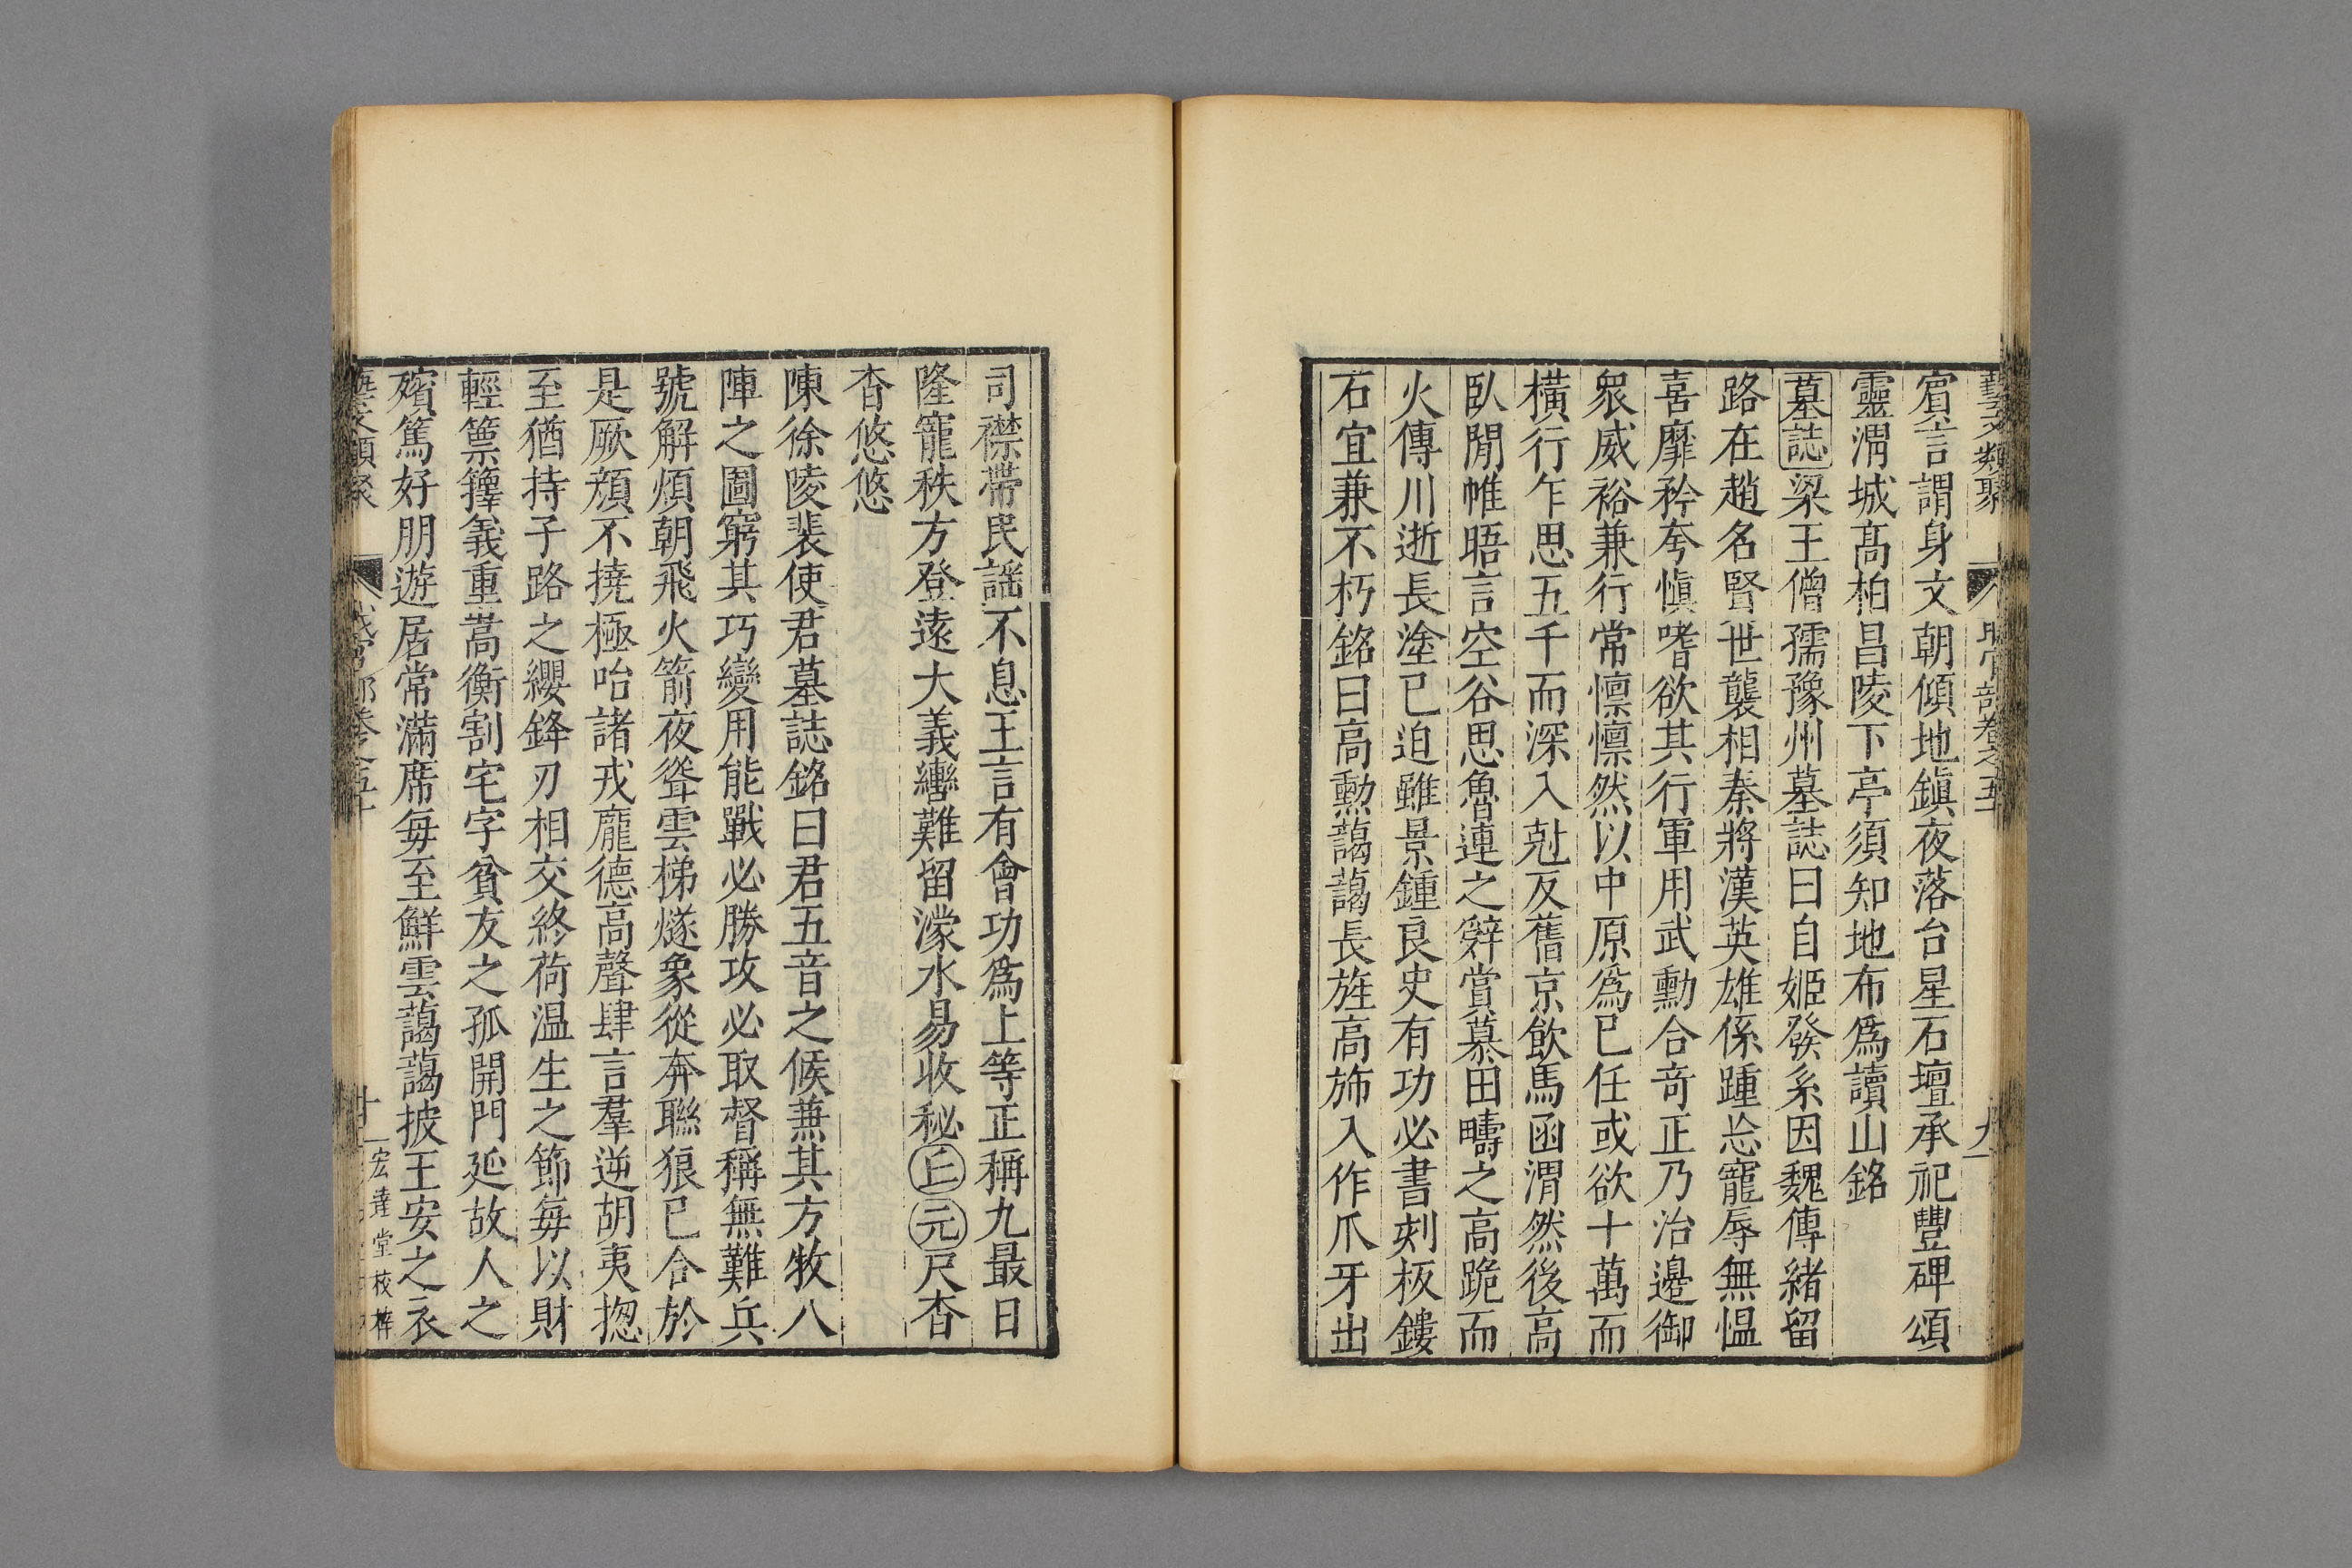 藝文類聚 職官部卷之五十
賓言謂身文朝傾地鎭夜落台星石壇承祀豐碑頌
靈渭城髙柏昌陵下亭須知地布爲讀山銘
墓誌梁王僧孺豫州墓誌曰自姬發系因魏傳緒留
路在趙名賢世襲相秦將漢英雄係踵忩寵辱無愠
喜靡矜夸愼嗜欲其行軍用武勳合竒正乃治邊御
衆威裕兼行常懍懍然以中原爲已任或欲十萬而
橫行乍思五千而深入尅反舊京飲馬函渭然後高
臥閒帷晤言空谷思魯連之辤賞慕田疇之高跪而
火傳川逝長塗已迫雖景鍾良史有功必書刾板鏤
石宜兼不朽銘曰高勳藹藹長旌高斾入作爪牙出
司襟帶民謡不息王言有會功爲上等正稱九最日
隆寵秩方登逺大義轡難留濛水易收秘丘元尺杳
杳悠悠
陳徐陵裴使君墓誌銘曰君五音之候蕪其方牧八
陣之圖窮其巧變用能戰必勝攻必取督稱無難兵
號解煩朝飛火箭夜聳雲梯燧象從奔聯狼已合於
是厥顔不撓極咍諸戎龐德高聲肆言羣逆胡夷揔
至猶持子路之纓鋒刃相交終荷温生之節每以財
輕篻籜義重嵩衡割宅字貧友之孤開門延故人之
殯篤好朋遊居常滿席每至鮮雲藹藹披王安之衣
藝文類聚 職官部卷之五十 宏達堂校梓